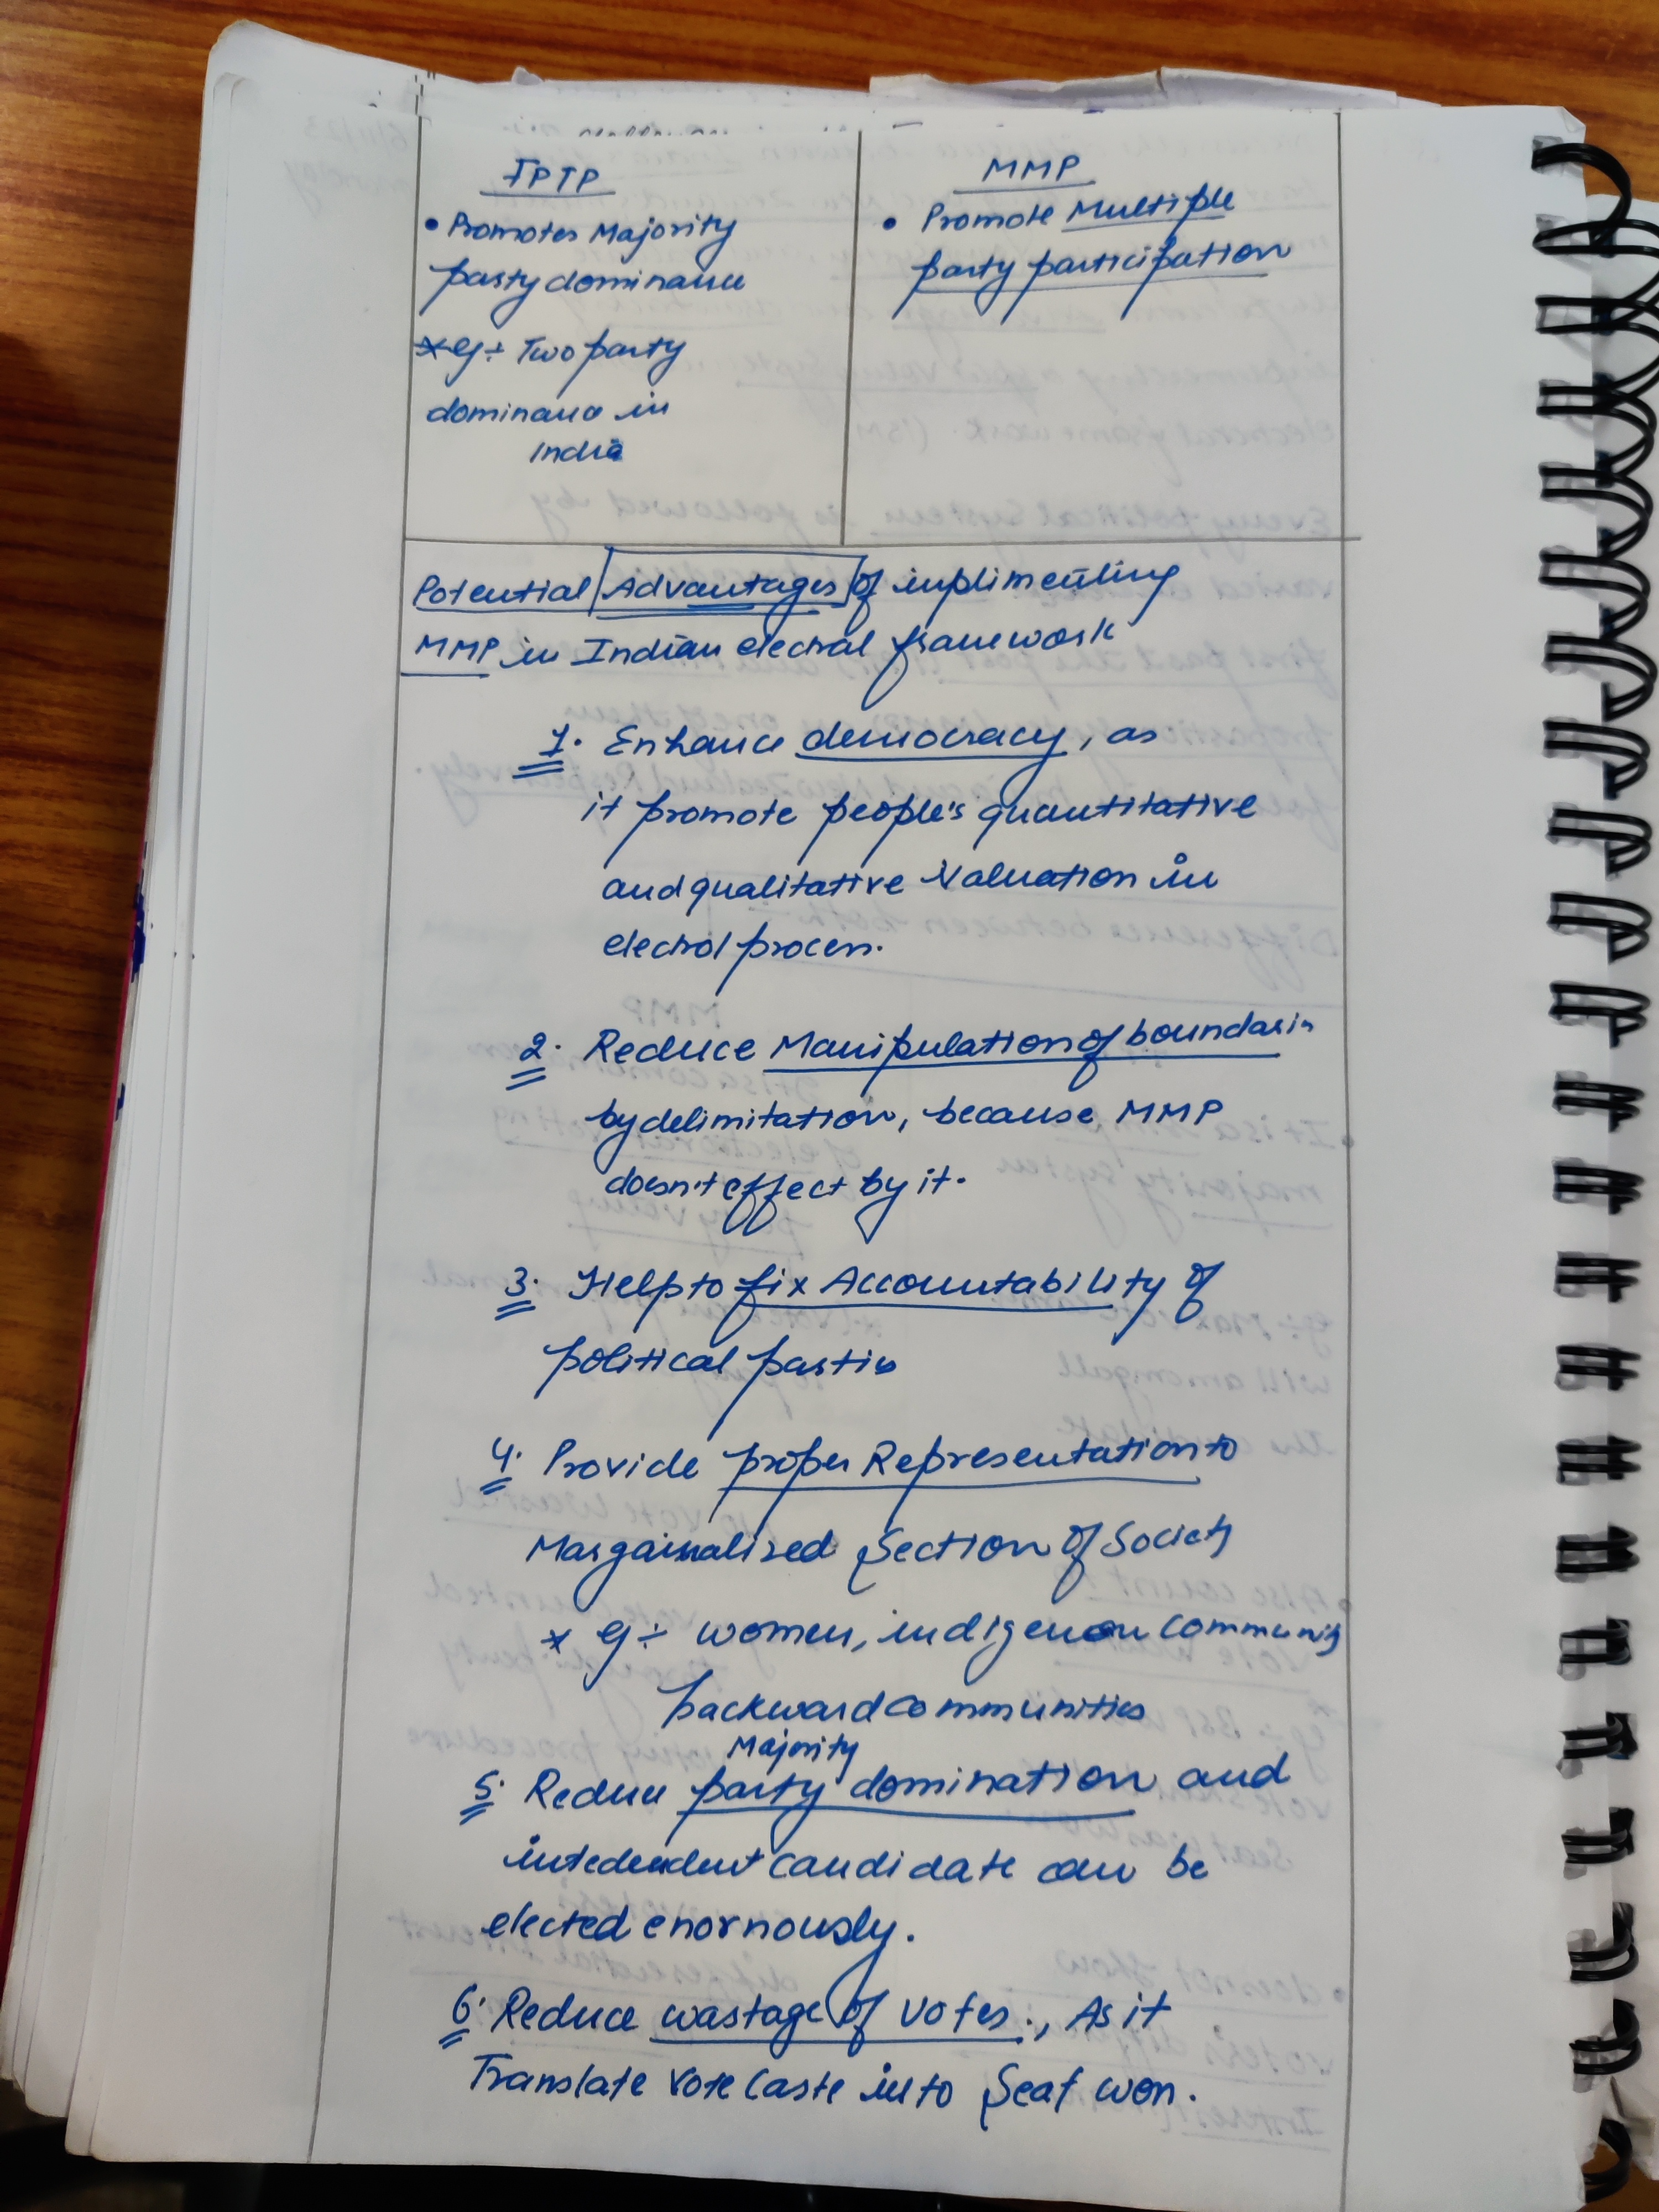 FPTP
• Promotes Majority
party dominance
* eg÷ Two party
dominance in
India
MMP
• Promote Multiple
party participation
Potential Advantages of implimenting
MMP in Indian electral framework
1. Enhance democracy, as
it promote people's quantitative
and qualitative Valuation in
electrol process.
2. Reduce Manipulation of boundaries
by delimitation, because MMP
doesn't effect by it.
3. Help to fix Accountability of
political parties
4. Provide proper Representation to
Section of Society
* eg÷ women, indigenous community
backward communities
Majority
5. Reduce party domination and
candidate can be
elected enormously.
6. Reduce wastage of votes., As it
Translate Vote Caste into Seat won.